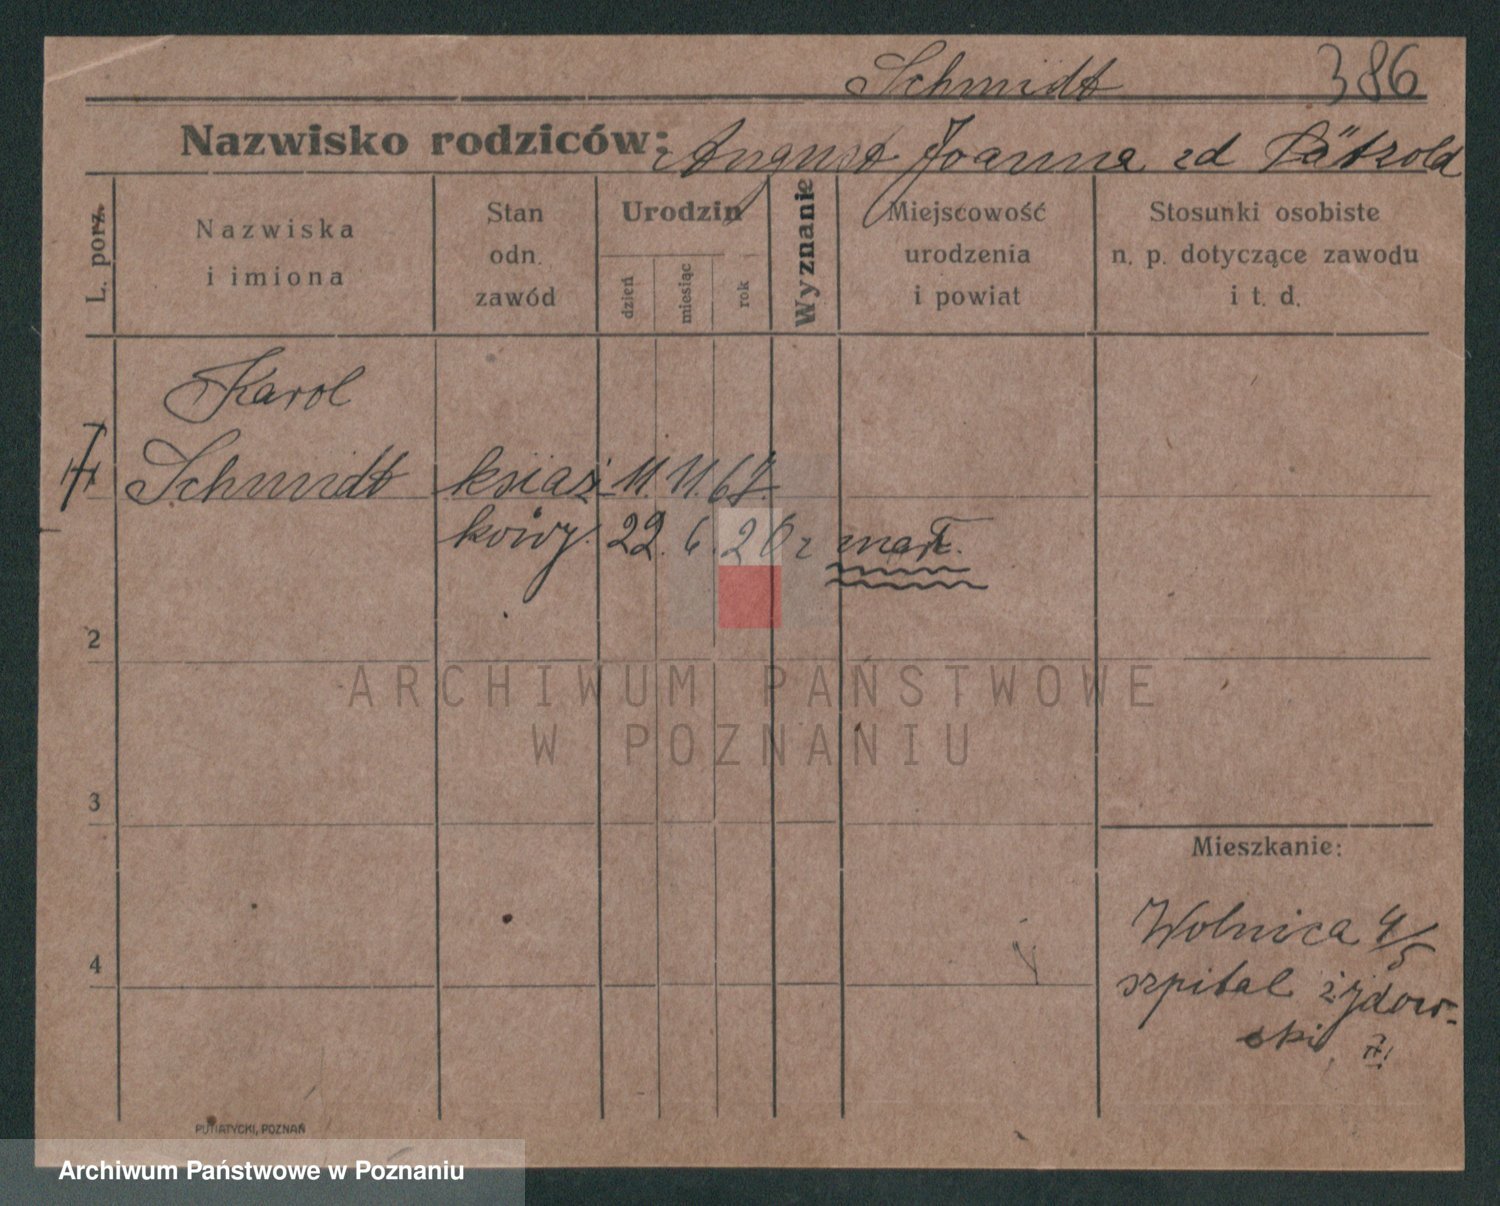 Schmidt 386
Nazwisko rodziców: August Joanna zd Pätzold
L. porz.
Nazwiska
i imiona
Stan
odn.
zawód
Urodzin
dzień
miesiąc
rok
Wyznanie
Miejscowość
urodzenia
i powiat
Stosunki osobiste
n. p. dotyczące zawodu
i t. d.
Karol
Schmidt książ- 11. 11. 67.
kowy. 22. 6. 20 r marł.
2
3
4
Mieszkanie:
Wolnica 4/5
szpital żydow-
ski
PUTIATYCKI, POZNAŃ
ARCHIWUM PAŃSTWOWE
W POZNANIU
Archiwum Państwowe w Poznaniu